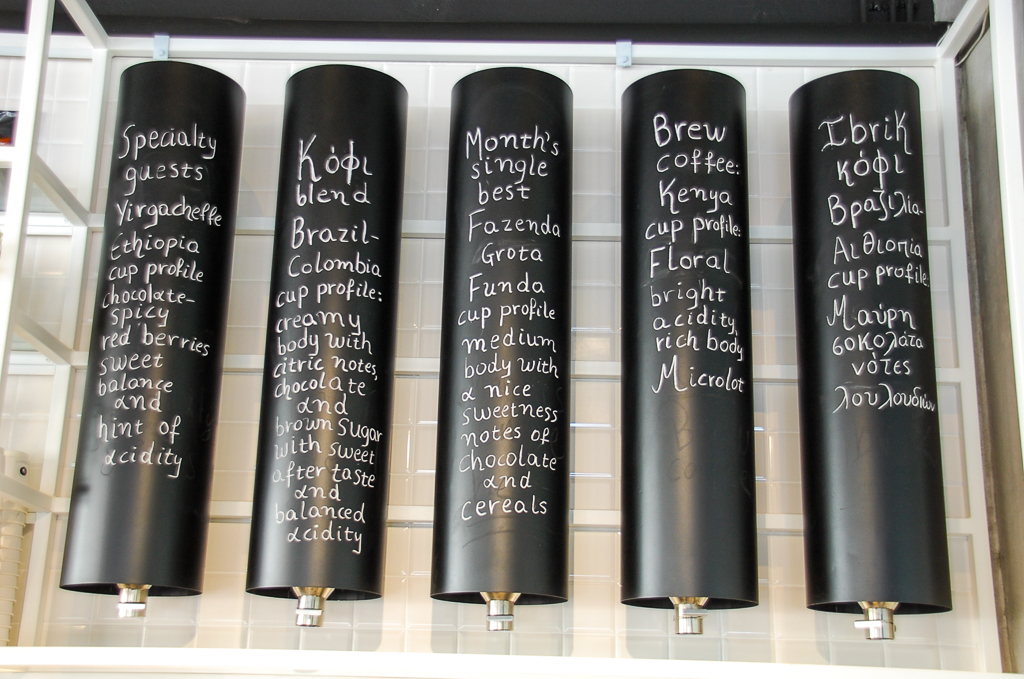 Specialty
guests
Yirgacheffe
Ethiopia
cup profile
chocolate-
spicy
red berries
sweet
balance
and
hint of
acidity
Κόφι
blend
Brazil-
Colombia
cup profile:
creamy
body with
citric notes,
chocolate
and
brown sugar
with sweet
after taste
and
balanced
acidity
Month's
single
best
Fazenda
Grota
Funda
cup profile
medium
body with
a nice
sweetness
notes of
chocolate
and
cereals
Brew
coffee:
Kenya
cup profile:
Floral
bright
acidity,
rich body
Microlot
Ibrik
κόφι
Βραζιλία-
Αιθιοπία
cup profile:
Μαύρη
σοκολάτα
νότες
λουλουδιών